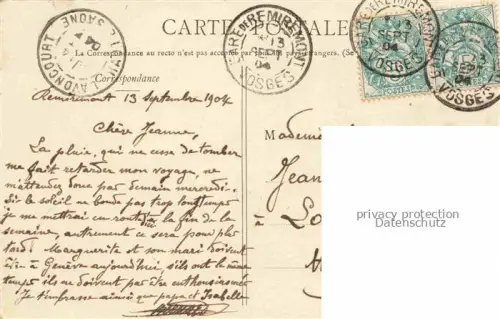 CARTE POSTALE
La Correspondance au recto n'est pas acceptée par
Correspondance
LAVONCOURT
HTE SAONE
GARE DE REMIREMONT
13
SEPT
04
VOSGES
GARE DE REMIREMONT
SEPT
04
VOSGES
SEPT
04
VOSGES
POSTES
Remiremont 13 Septembre 1904
Chère Jeanne,
La pluie, qui ne cesse de tomber
me fait retarder mon voyage, ne
m'attendez donc pas demain mercredi.
Si le soleil ne boude pas trop longtemps
je me mettrai en route la fin de la
semaine, autrement ce sera pour plus
tard. Marguerite et son mari doivent
être à Genève aujourd'hui, s'ils ont le même
temps ils ne doivent pas être enthousiasmés
Je t'embrasse ainsi que papa et Isabelle
Jean
à
privacy protection
Datenschutz